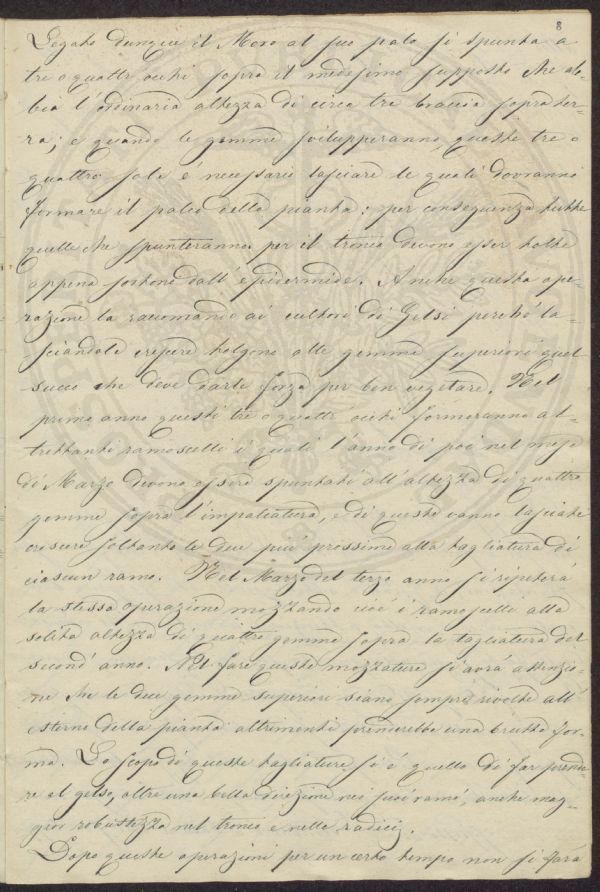 8
Legato dunque il Moro al suo palo si spunta a
tre o quattr' occhi sopra il medesimo supposto che ab-
bia l'ordinaria altezza di circa tre braccia sopra ter-
ra; e quando le gemme svilupperanno, queste tre o
quattro sole é necessario lasciare le quali dovranno
formare il palco della pianta: per conseguenza tutte
quelle che spunteranno per il tronco devono esser tolte
appena sortono dall'epidermide. Anche questa ope-
razione la racomando ai cultori di Gelsi perché la-
sciandole crescere tolgono alle gemme superiori quel
succo che deve darle forza per ben vegetare. Nel
primo anno questi tre o quattr' occhi formeranno al-
trettanti ramoscelli i quali l'anno di poi nel mese
di Marzo devono essere spuntati all'altezza di quattro
gemme sopra l'impalcatura, e di queste vanno lasciate
crescere soltanto le due piú prossime alla tagliatura di
ciascun ramo. Nel Marzo del terzo anno si ripeterá
la stessa operazione mozzando cioé i ramoscelli alla
solita altezza di quattro gemme sopra la tagliatura del
second' anno. Nel fare queste mozzature si avrá attenzio-
ne che le due gemme superiori siano sempre rivolte all'
esterno della pianta altrimenti prenderebbe una brutta for-
ma. Lo scopo di queste tagliature si é quello di far prende-
re al gelso, oltre una bella direzione nei suoi rami, anche mag-
gior robustezza nel tronco e nelle radici.
Dopo queste operazioni per un certo tempo non si fará